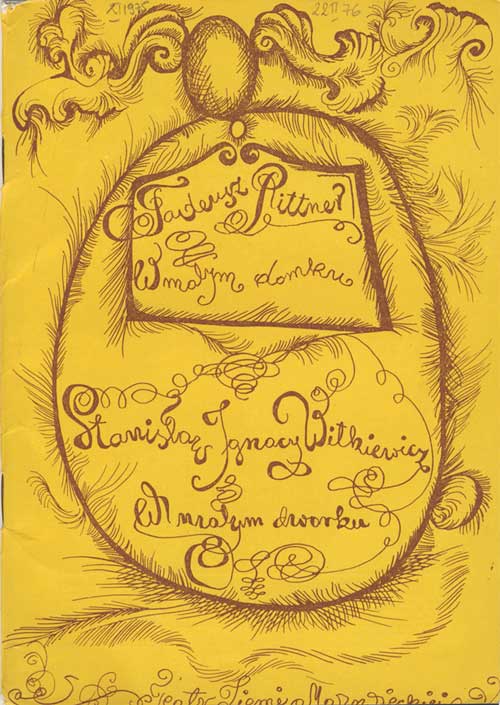 XI 1975
22 II 76
Tadeusz Rittner
W małym domku
Stanisław Ignacy Witkiewicz
W małym dworku
Teatr Ziemi Mazowieckiej